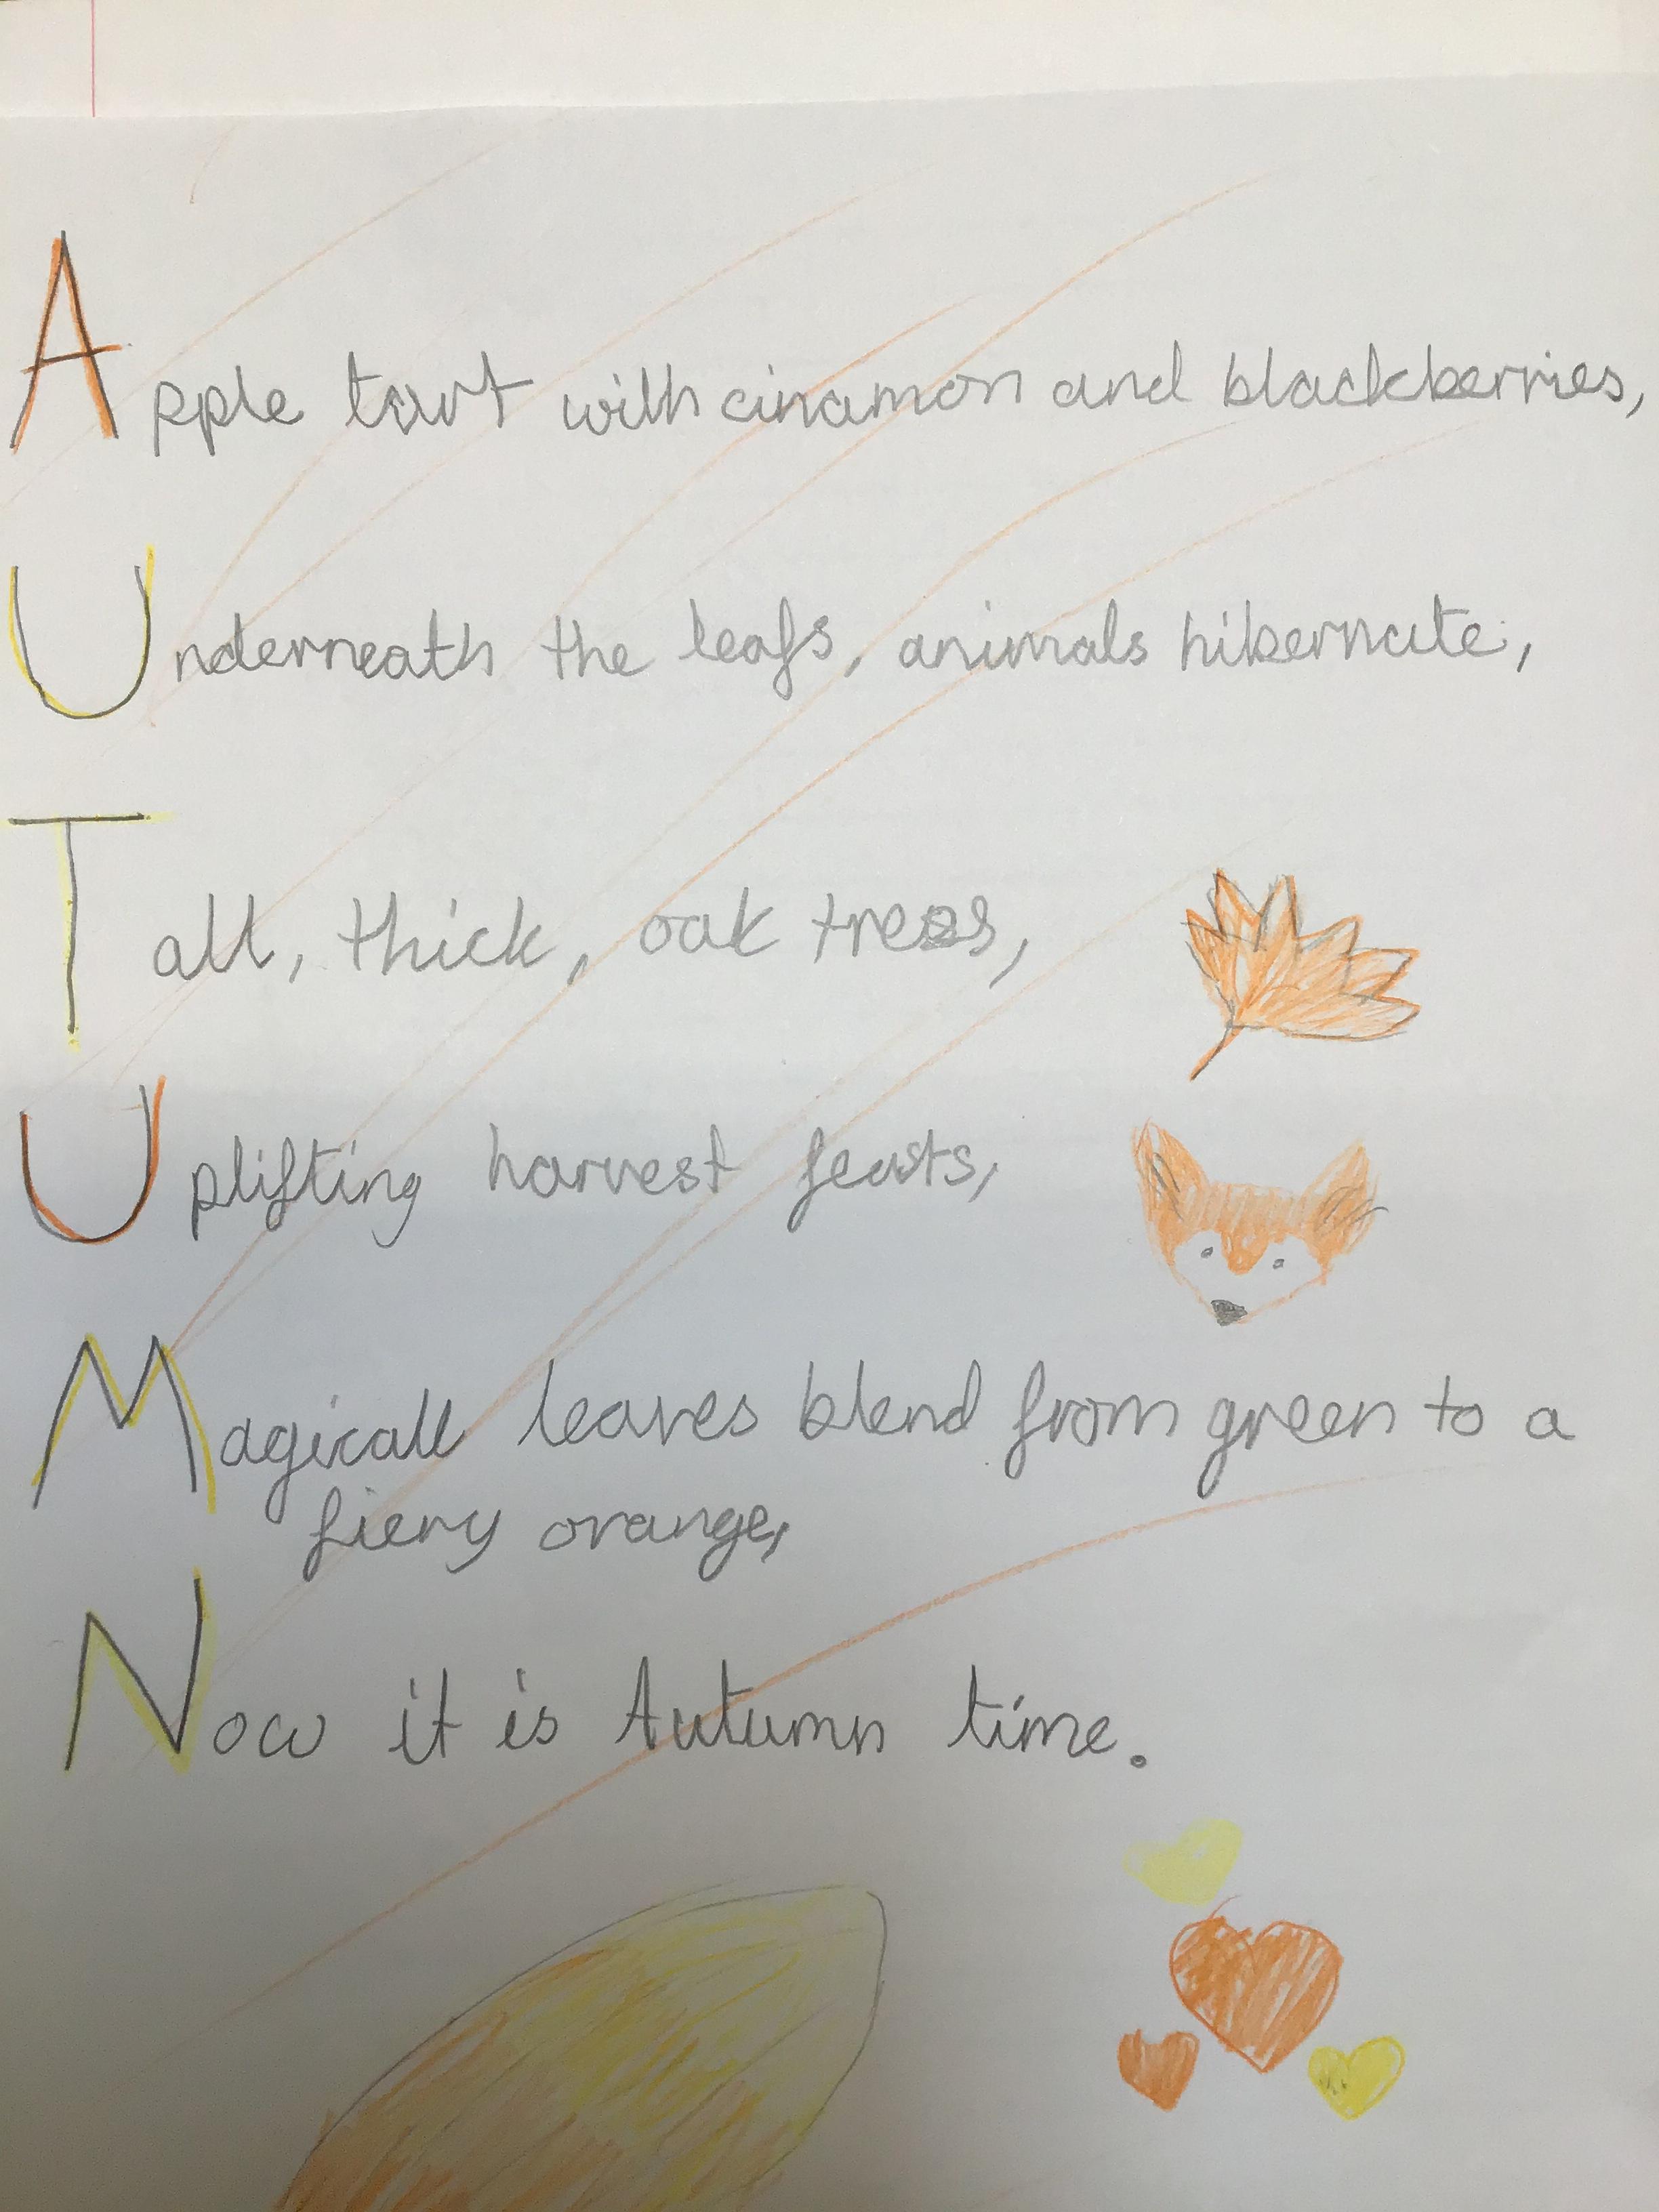 Apple tart with cinamon and blackberries,
Underneath the leafs, animals hibernate,
Tall, thick, oak trees,
Uplifting harvest feasts,
Magicall leaves blend from green to a
fiery orange,
Now it is Autumn time.